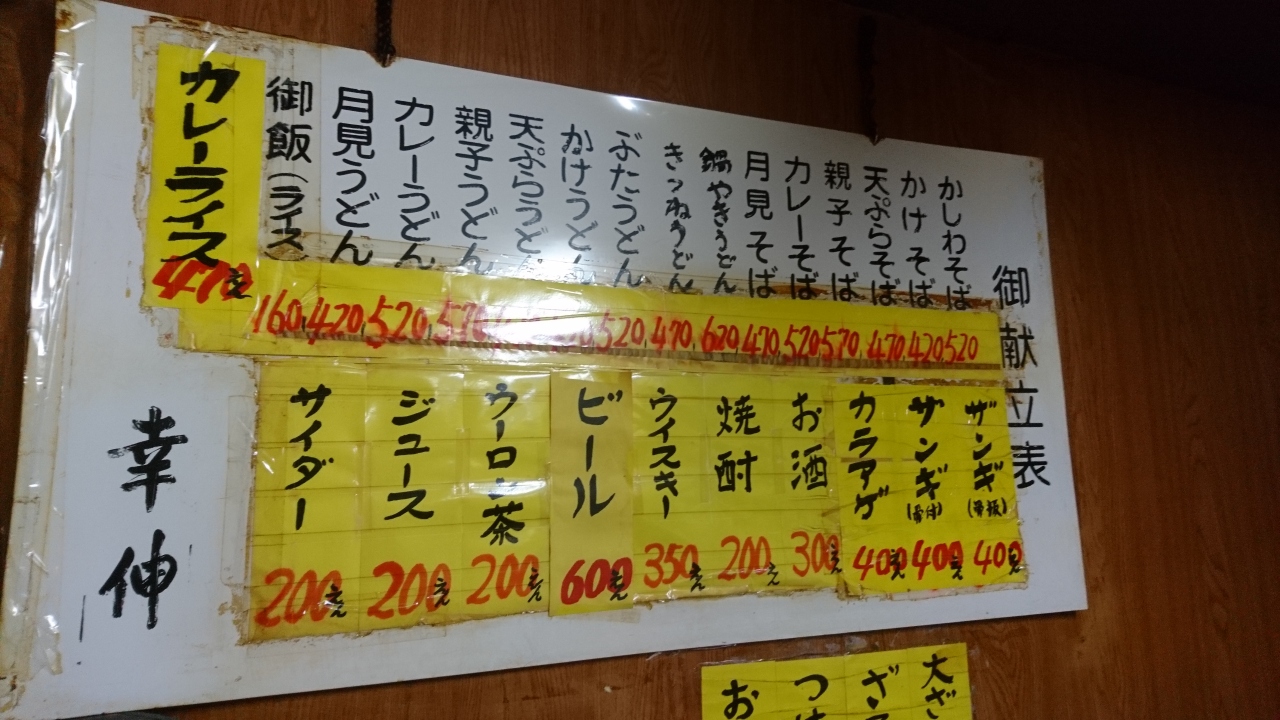 御献立表
かしわそば
かけそば
天ぷらそば
親子そば
カレーそば
月見そば
鍋やきうどん
きつねうどん
ぶたうどん
かけうどん
天ぷらうどん
親子うどん
カレーうどん
月見うどん
御飯(ライス)
カレーライス
520
420
470
570
520
470
620
470
520
520
420
160
470
ザンギ
400
ザンギ
(骨付)
400
カラアゲ
400
お酒
300
焼酎
200え
ウイスキー
350え
ビール
600
ウーロン茶
200
ジュース
200え
サイダー
200
幸伸
大ざ
ざ
つ
お